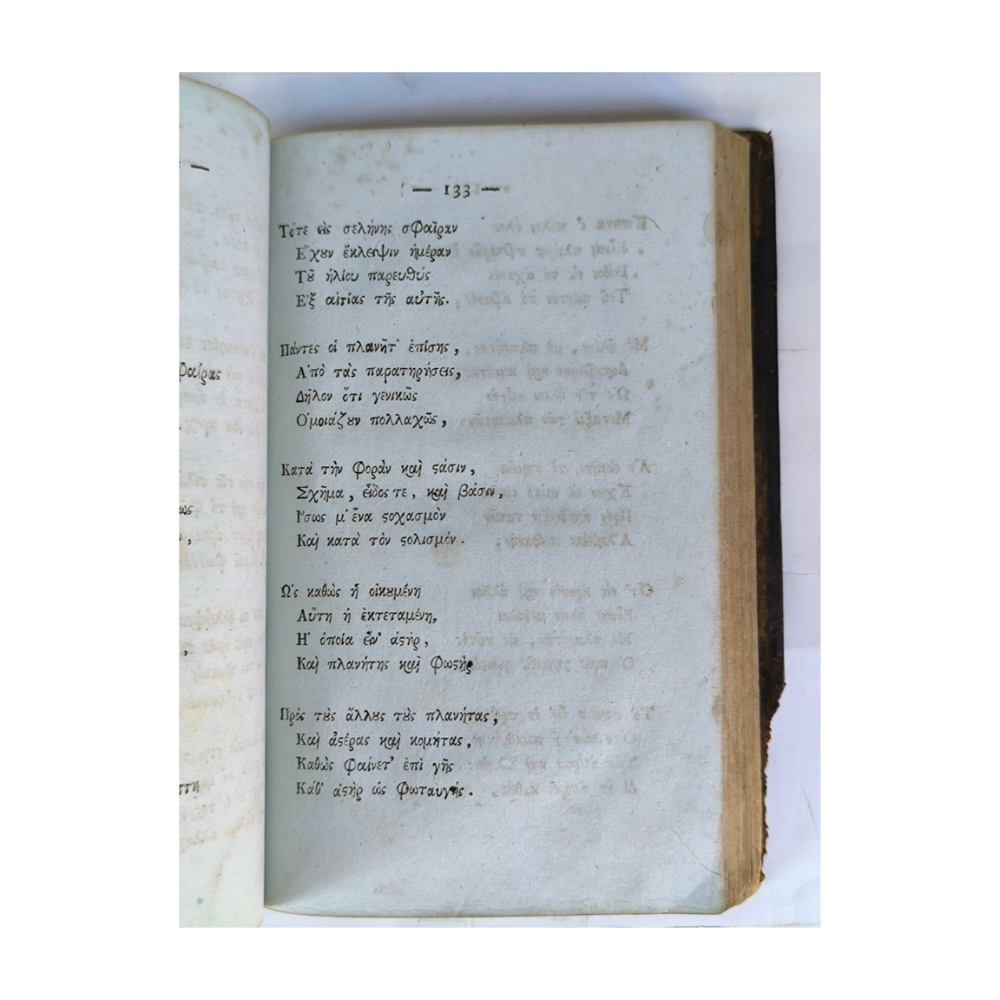 — 133 —
Τότε εἰς σελήνης σφαῖραν
Ἔχουν ἔκλειψιν ἡμέραν
Τοῦ ἡλίου παρευθύς
Ἐξ αἰτίας τῆς αὐτῆς.
Πάντες οἱ πλανῆτ' ἐπίσης,
Ἀπὸ τὰς παρατηρήσεις,
Δῆλον ὅτι γενικῶς
Ὁμοιάζουν πολλαχῶς,
Κατὰ τὴν φορὰν καὶ ϛάσιν,
Σχῆμα, εἶδος τε, καὶ βάσιν,
Ἴσως μ' ἕνα ϛοχασμὸν
Καὶ κατὰ τὸν ϛολισμόν.
Ὡς καθὼς ἡ οἰκουμένη
Αὕτη ἡ ἐκτεταμένη,
Ἡ ὁποία ἔιν' ἀϛὴρ,
Καὶ πλανήτης καὶ φωϛὴρ
Πρὸς τοὺς ἄλλους τοὺς πλανήτας,
Καὶ ἀϛέρας καὶ κομήτας,
Καθὼς φαίνετ' ἐπὶ γῆς
Καθ' ἀϛὴρ ὡς φωταυγής.
φαίρας